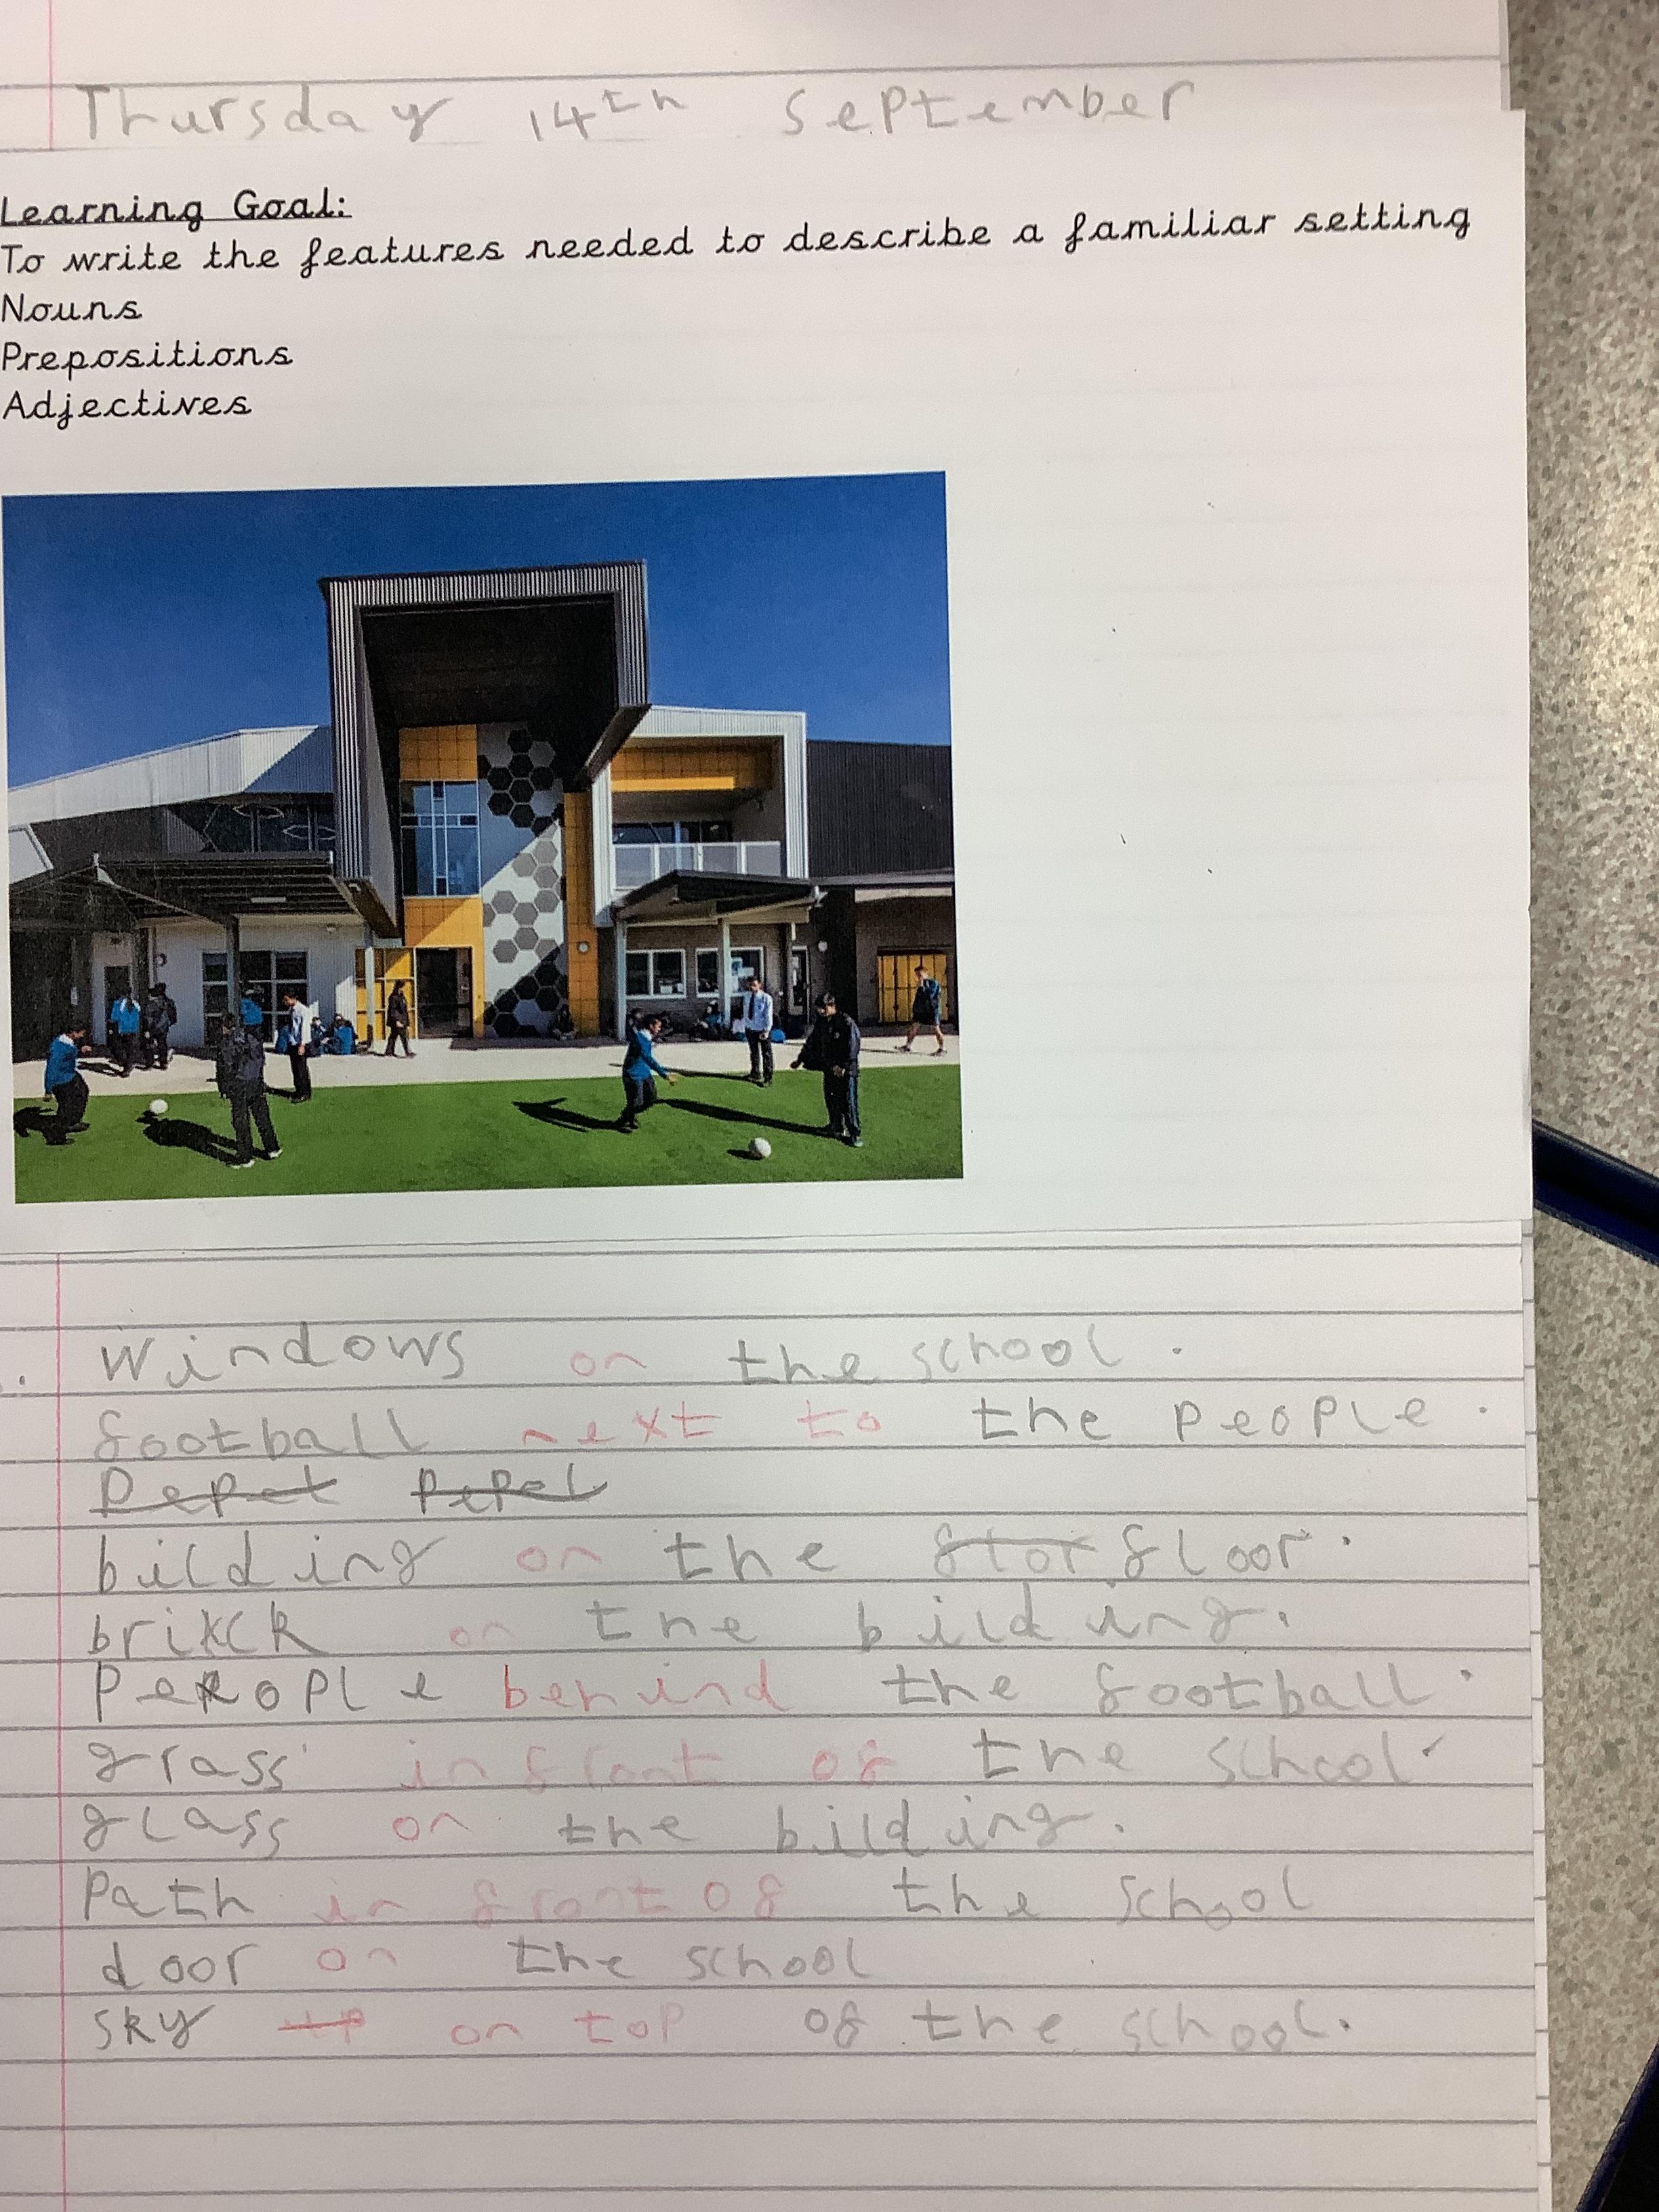 Thursday 14th September
Learning Goal:
To write the features needed to describe a familiar setting
Nouns
Prepositions
Adjectives
Windows on the school.
football next to the people.
bilding on the floor.
brick on the bilding.
people behind the football.
grass in front of the school.
glass on the bilding.
Path in front of the school
door on the school
sky on top of the school.